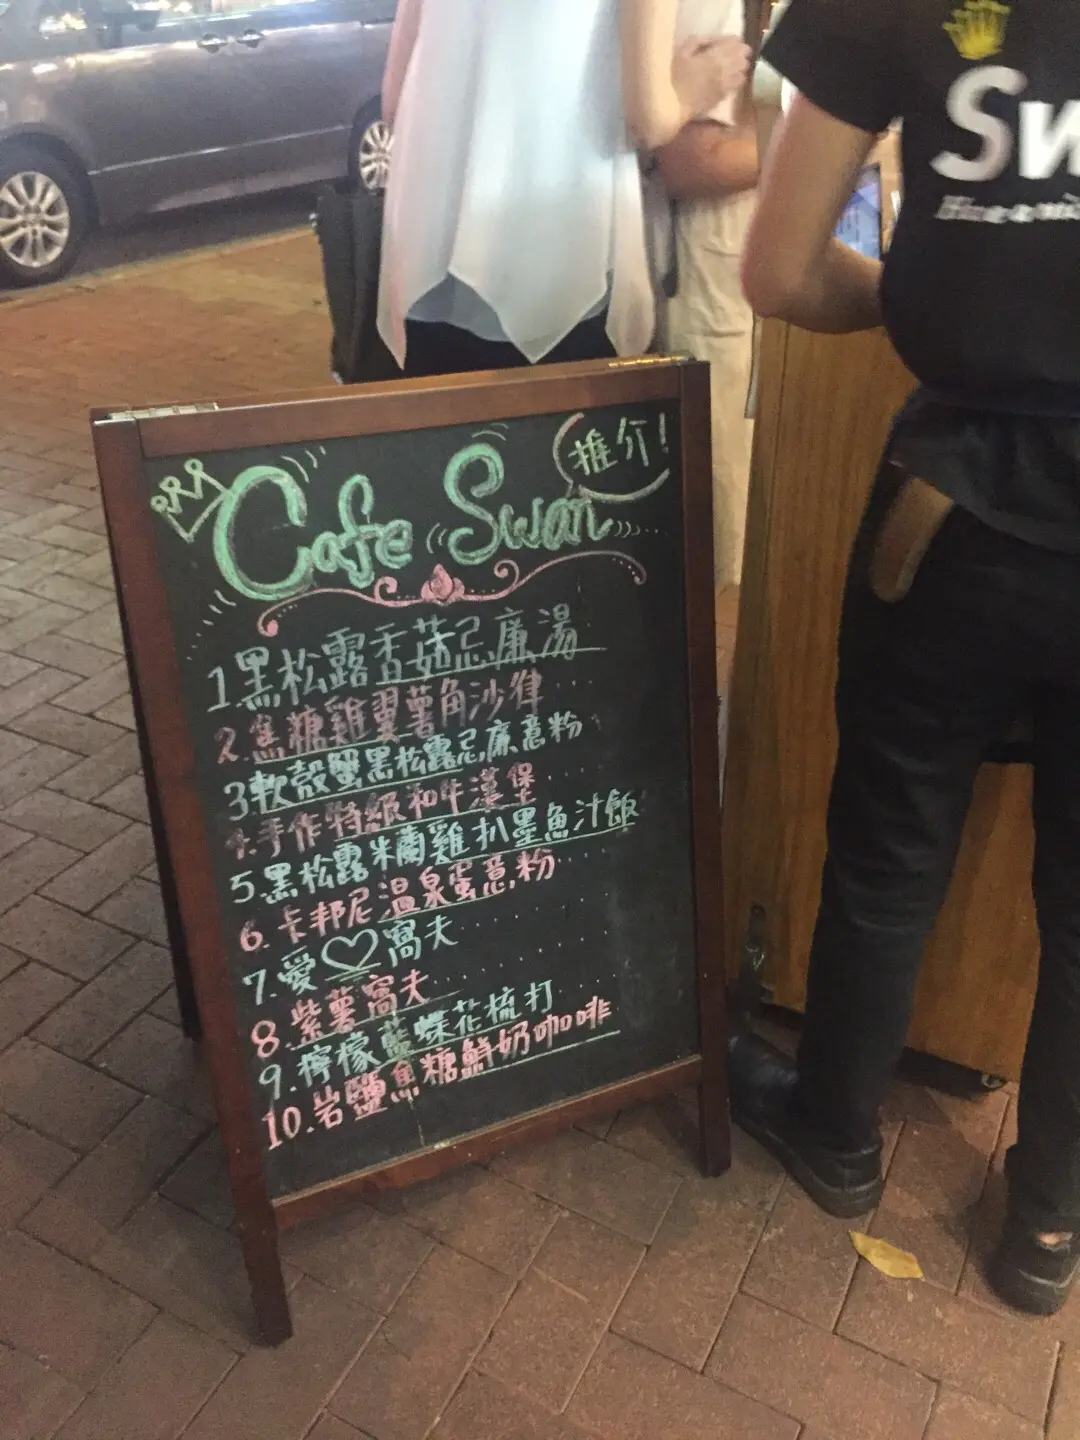 推介!
Cafe Swan
1.黑松露香菇忌廉湯
2.焦糖雞翼薯角沙律
3.軟殼蟹黑松露忌廉意粉
4.手作特級和牛漢堡
5.黑松露米蘭雞扒墨魚汁飯
6.卡邦尼溫泉蛋意粉
7.愛♡窩夫
8.紫薯窩夫
9.檸檬藍蝶花梳打
10.岩鹽焦糖鮮奶咖啡
Sw